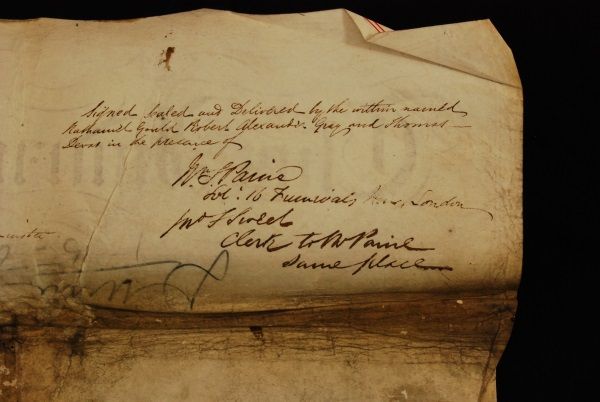 Signed Sealed and Delivered by the within named
Nathaniel Gould Robert Alexander Gray and Thomas
Devas in the presence of
Wm S Paine
Solr. 16 Furnivals Inn, London
Jno S
Clerk to Mr Paine
Same place